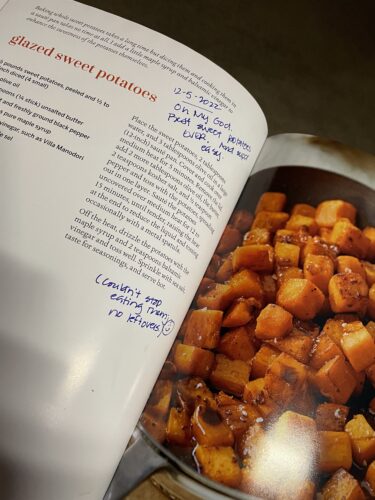 Baking whole sweet potatoes takes a long time but dicing them and cooking them in
a sauté pan takes no time at all. I add a little maple syrup and balsamic vinegar to
enhance the sweetness of the potatoes themselves.
glazed sweet potatoes
pounds sweet potatoes, peeled and ½ to
inch diced (4 small)
olive oil
poons (¼ stick) unsalted butter
t and freshly ground black pepper
s pure maple syrup
vinegar, such as Villa Manodori
12-5-2022
Oh My God.
Best sweet potatoes
Ever. And super
easy.
Place the sweet potatoes, 2 tablespoons
water, and 3 tablespoons olive oil in a large
(12-inch) sauté pan. Cover and cook over
medium heat for 5 minutes. Uncover and
add 2 more tablespoons olive oil, the butter,
2 teaspoons kosher salt, and ½ teaspoon
pepper and toss with the potatoes, spreading
out in one layer. Sauté the potatoes,
uncovered over medium heat for 12 to
15 minutes, until tender, raising the heat
at the end to reduce the liquid and tossing
occasionally with a metal spatula.
Off the heat, drizzle the potatoes with the
maple syrup and 2 teaspoons balsamic
vinegar and toss well. Sprinkle with sea salt,
taste for seasonings, and serve hot.
(Couldn't stop
eating them;
no leftovers